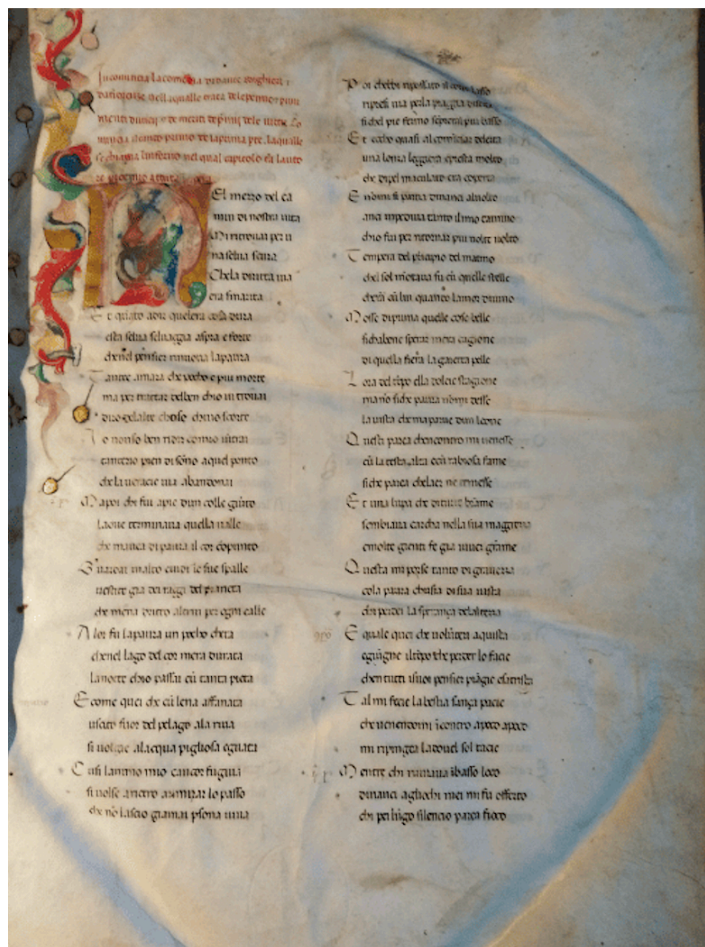 Incomincia la comedia di dante alighieri
di fiorenze nell aqualle trata dele pene e puni
menti di vicij e de meriti
del primo de la prima pte. laqualle
se chiama linferno nel qual capitolo fa lauto
re prohemio a tutta
El mezzo del ca
min di nostra uita
Mi ritrouai per u
na selua scura
Chela diritta uia
era smarita
Et quāto adir quelera cosa dura
esta selua seluaggia aspra e forte
chenel pensier rinnoua lapaura
Tantoe amara che pocho e piu morte
ma per trattar delben chio ui trouai
diro delaltre chose chiuo scorte
Io nonso ben ridir comio ūtrai
tantero pien di sōno aquel ponto
che la uerace uia abandonai
Mapoi chi fui apie dun colle giūto
laoue terminaua quella ualle
che mauea di paura il cor cōpunto
Guardai inalto e uidi le sue spalle
uestite gia dei raggi del pianeta
che mena dritto altrui per ogni calle
Alor fu lapaura un pocho cheta
chenel lago del cor mera durata
lanotte chio passai cū tanta pieta
E come quei che cū lena affanata
uscito fuor del pelago ala riua
si uolgie alacqua pigliosa eguata
Cusi lanimo mio cancor fugiua
si uolse aretro arimirar lo passo
che nō lascio giamai psona uiua
Poi chebbi riposato il corpo lasso
ripresi uia perla piaggia diserta
si chel pie fermo sempre era piu basso
Et eccho quasi al cominciar delerta
una lonza leggiera epresta molto
che dipel maculato era coperta
E nōmi si partia dinanci aluolto
anci impediua tanto ilmio camino
chio fui per ritornar piu uolte uolto
Tempera del pncipio del matino
elsol mōtaua su cū quelle stelle
cherā cū lui quando lamor diuino
Mosse diprima quelle cose belle
sichabene sperar mera cagione
di quella fiera la gaietta pelle
Lora del tēpo ella dolce stagione
ma nō siche paura nōmi desse
la uista che maparue dun leone
Questi parea chencontro mi uenesse
cū la testa alta ecū rabiosa fame
siche parea chelaer ne temesse
Et una lupa che di tutte brame
sembiaua carcha nella sua maggreza
emolte gienti fe gia uiuer grame
Questa mi porse tanto di graueza
cola paura chuscia di sua uista
chi perdei la sperança delalteza
E quale quei che uolūtieri aquista
egiūgne iltēpo che perder lo facie
chen tutti isuoi pensier piāgie esatrista
Tal mi fecie la bestia sança pacie
che uenendomi īcontro apoco apoco
mi ripingea ladouel sol tacie
Mentre chi ruinaua ībasso loco
dinanci agliochi mei mi fu offerto
chi per lūgo silencio parea fioco